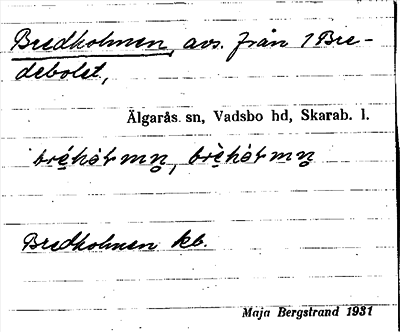 Bredholmen, avs. från 1 Bre-
debolet,
Älgarås sn, Vadsbo hd, Skarab. l.
Bredholmen kb.
Maja Bergstrand 1931